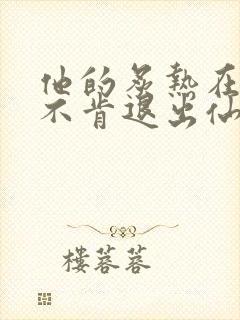 他的炙熱在
不肯退出仙
樓蓉蓉